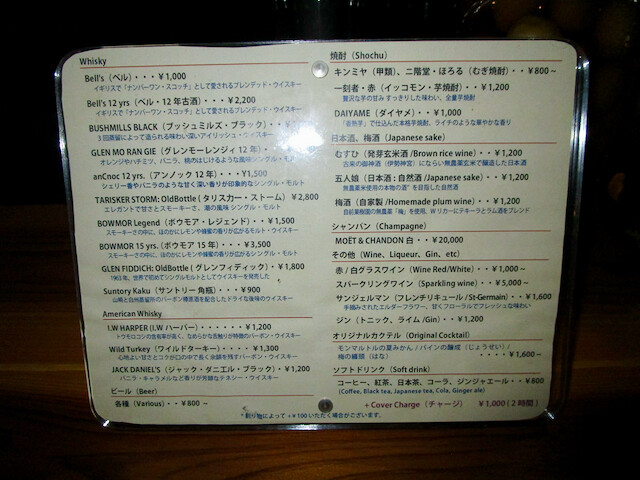 Whisky
Bell's（ベル）・・・¥1,000
イギリスで「ナンバーワン・スコッチ」として愛されるブレンデッド・ウイスキー
Bell's 12 yrs（ベル・12 年古酒）・・・¥2,200
イギリスで「ナンバーワン・スコッチ」として愛されるブレンデッド・ウイスキー
BUSHMILLS BLACK（ブッシュミルズ・ブラック）・・・
3回蒸留によって造られる味わい深いアイリッシュ・ウイスキー
GLEN MO RAN GIE（グレンモーレンジィ 12 年）
オレンジやハチミツ、バニラ、桃のはじけるような風味シングル・モルト
anCnoc 12 yrs.（アンノック 12 年）・・・¥1,500
シェリー香やバニラのような甘く深い香りが印象的なシングル・モルト
TARISKER STORM: OldBottle ( タリスカー・ストーム）¥2,800
エレガントで甘さとスモーキーさ、潮の風味 シングル・モルト
BOWMOR Legend（ボウモア・レジェンド）・・¥1,500
スモーキーさの中に、ほのかにレモンや蜂蜜の香りが広がるシングル・モルト
BOWMOR 15 yrs.（ボウモア 15 年）・・・¥3,500
スモーキーさの中に、ほのかにレモンや蜂蜜の香りが広がるシングル・モルト
GLEN FIDDICH: OldBottle ( グレンフィディック）・¥1,800
1963年、世界で初めてシングルモルトとしてウイスキーを発売した
Suntory Kaku（サントリー 角瓶）・・・¥900
山崎と白州蒸留所のバーボン樽原酒を配合したドライな後味のウイスキー
American Whisky
I.W HARPER (I.W ハーパー)・・・・・・・¥1,200
トウモロコシの含有率が高く、なめらかな舌触りが特徴のバーボン・ウイスキー
Wild Turkey（ワイルドターキー）・・・・¥1,300
心地よい甘さとコクが口の中で長く余韻を残すバーボン・ウイスキー
JACK DANIEL'S（ジャック・ダニエル・ブラック）・¥1,200
バニラ・キャラメルなど香りが芳醇なテネシー・ウイスキー
ビール（Beer）
各種（Various）・・¥800 ～
焼酎（Shochu）
キンミヤ（甲類）、二階堂・ほろる（むぎ焼酎）・・¥800～
一刻者・赤（イッコモン・芋焼酎）・・・¥1,200
贅沢な芋の甘み すっきりした味わい、全量芋焼酎
DAIYAME（ダイヤメ）・・¥1,000
「香熟芋」で仕込んだ本格芋焼酎、ライチのような華やかな香り
日本酒、梅酒（Japanese sake）
むすひ（発芽玄米酒 /Brown rice wine）・・¥1,200
古来の御神酒（伊勢神宮）にならい無農薬玄米で醸造した日本酒
五人娘（日本酒：自然酒 /Japanese sake）・・¥1,200
無農薬米使用の本物の酒"を目指した自然酒
梅酒（自家製 /Homemade plum wine）・・¥1,200
自起業樹園の無農薬「梅」を使用、W リカーにテキーラとラム酒をブレンド
シャンパン（Champagne）
MOËT & CHANDON 白・・¥20,000
その他（Wine、Liqueur、Gin、etc）
赤 / 白グラスワイン（Wine Red/White）・・¥1,000～
スパークリングワイン（Sparkling wine）・・¥5,000～
サンジェルマン（フレンチリキュール / St-Germain）・・¥1,600
手摘みされたエルダーフラワー、甘くフローラルでフレッシュな味わい
ジン（トニック、ライム /Gin）・・¥1,200
オリジナルカクテル（Original Cocktail）
モンマルトルの夏みかん / パインの醸成（じょうせい）/
梅の繊類（はな）・・・・・¥1,600～
ソフトドリンク（Soft drink）
コーヒー、紅茶、日本茶、コーラ、ジンジャエール・・¥800
(Coffee, Black tea, Japanese tea, Cola, Ginger ale)
+ Cover Charge（チャージ） ¥1,000 ( 2 時間 )
* 割り物によって +¥100 いただく場合がございます。